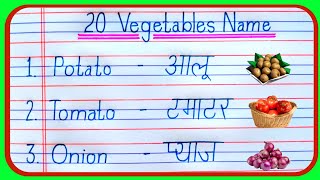 20 Vegetables Name
1. Potato - आलू
2. Tomato - टमाटर
3. Onion - प्याज